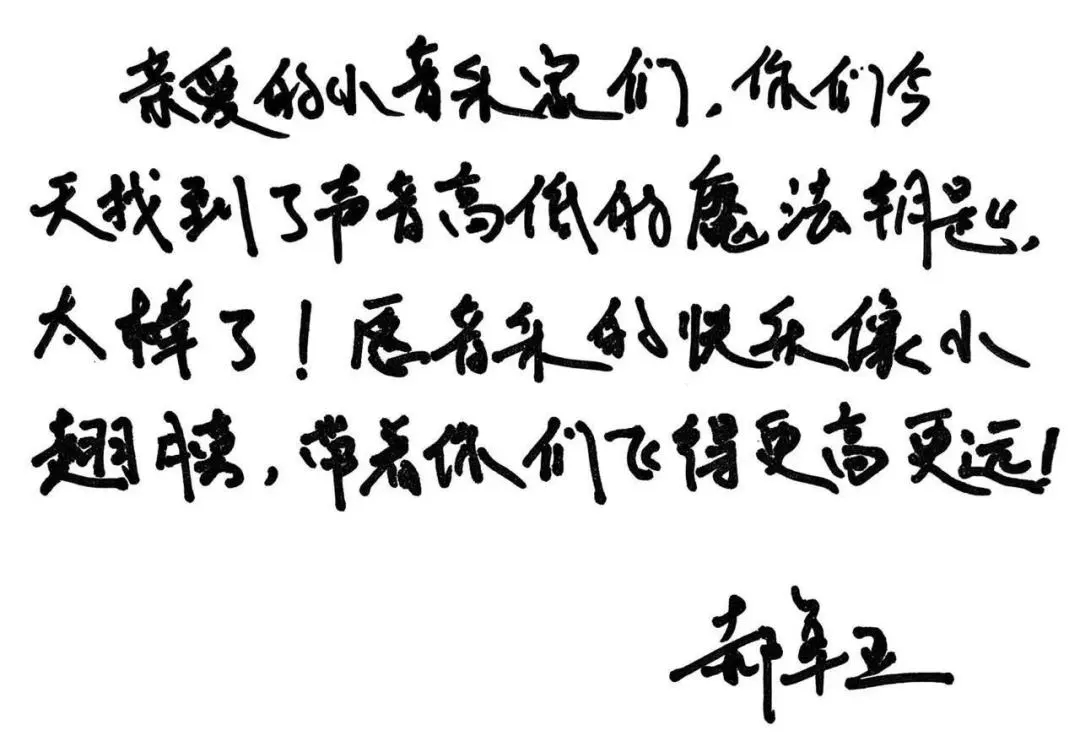 亲爱的小音乐家们，你们今
天找到了声音高低的魔法钥匙，
太棒了！愿音乐的快乐像小
翅膀，带着你们飞得更高更远！